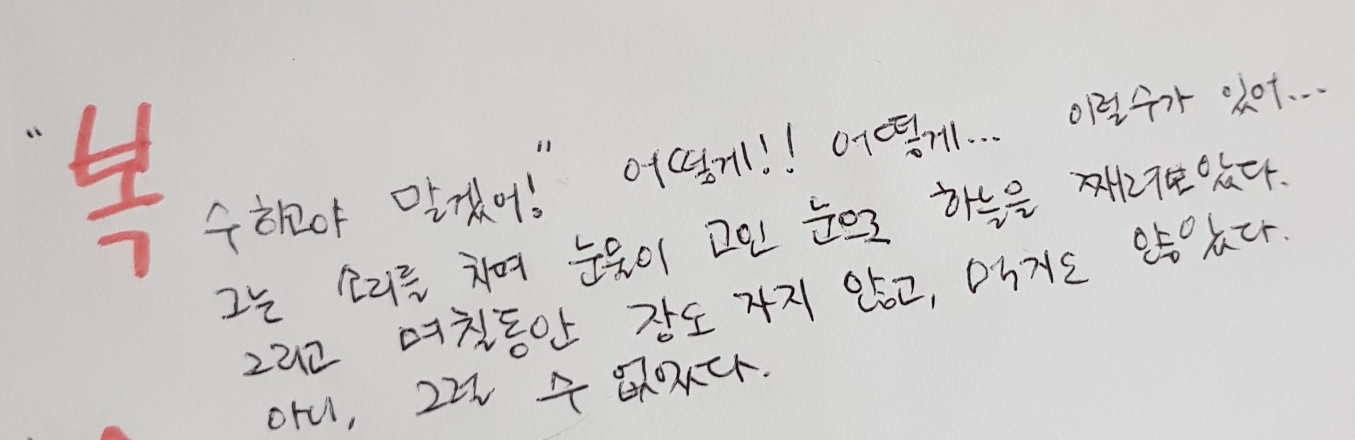 "복수하고야 말겠어!" 어떻게!! 어떻게... 이럴수가 있어...
그는 소리를 치며 눈물이 고인 눈으로 하늘을 째려보았다.
그리고 며칠동안 잠도 자지 않고, 먹지도 않았다.
아니, 그럴 수 없었다.